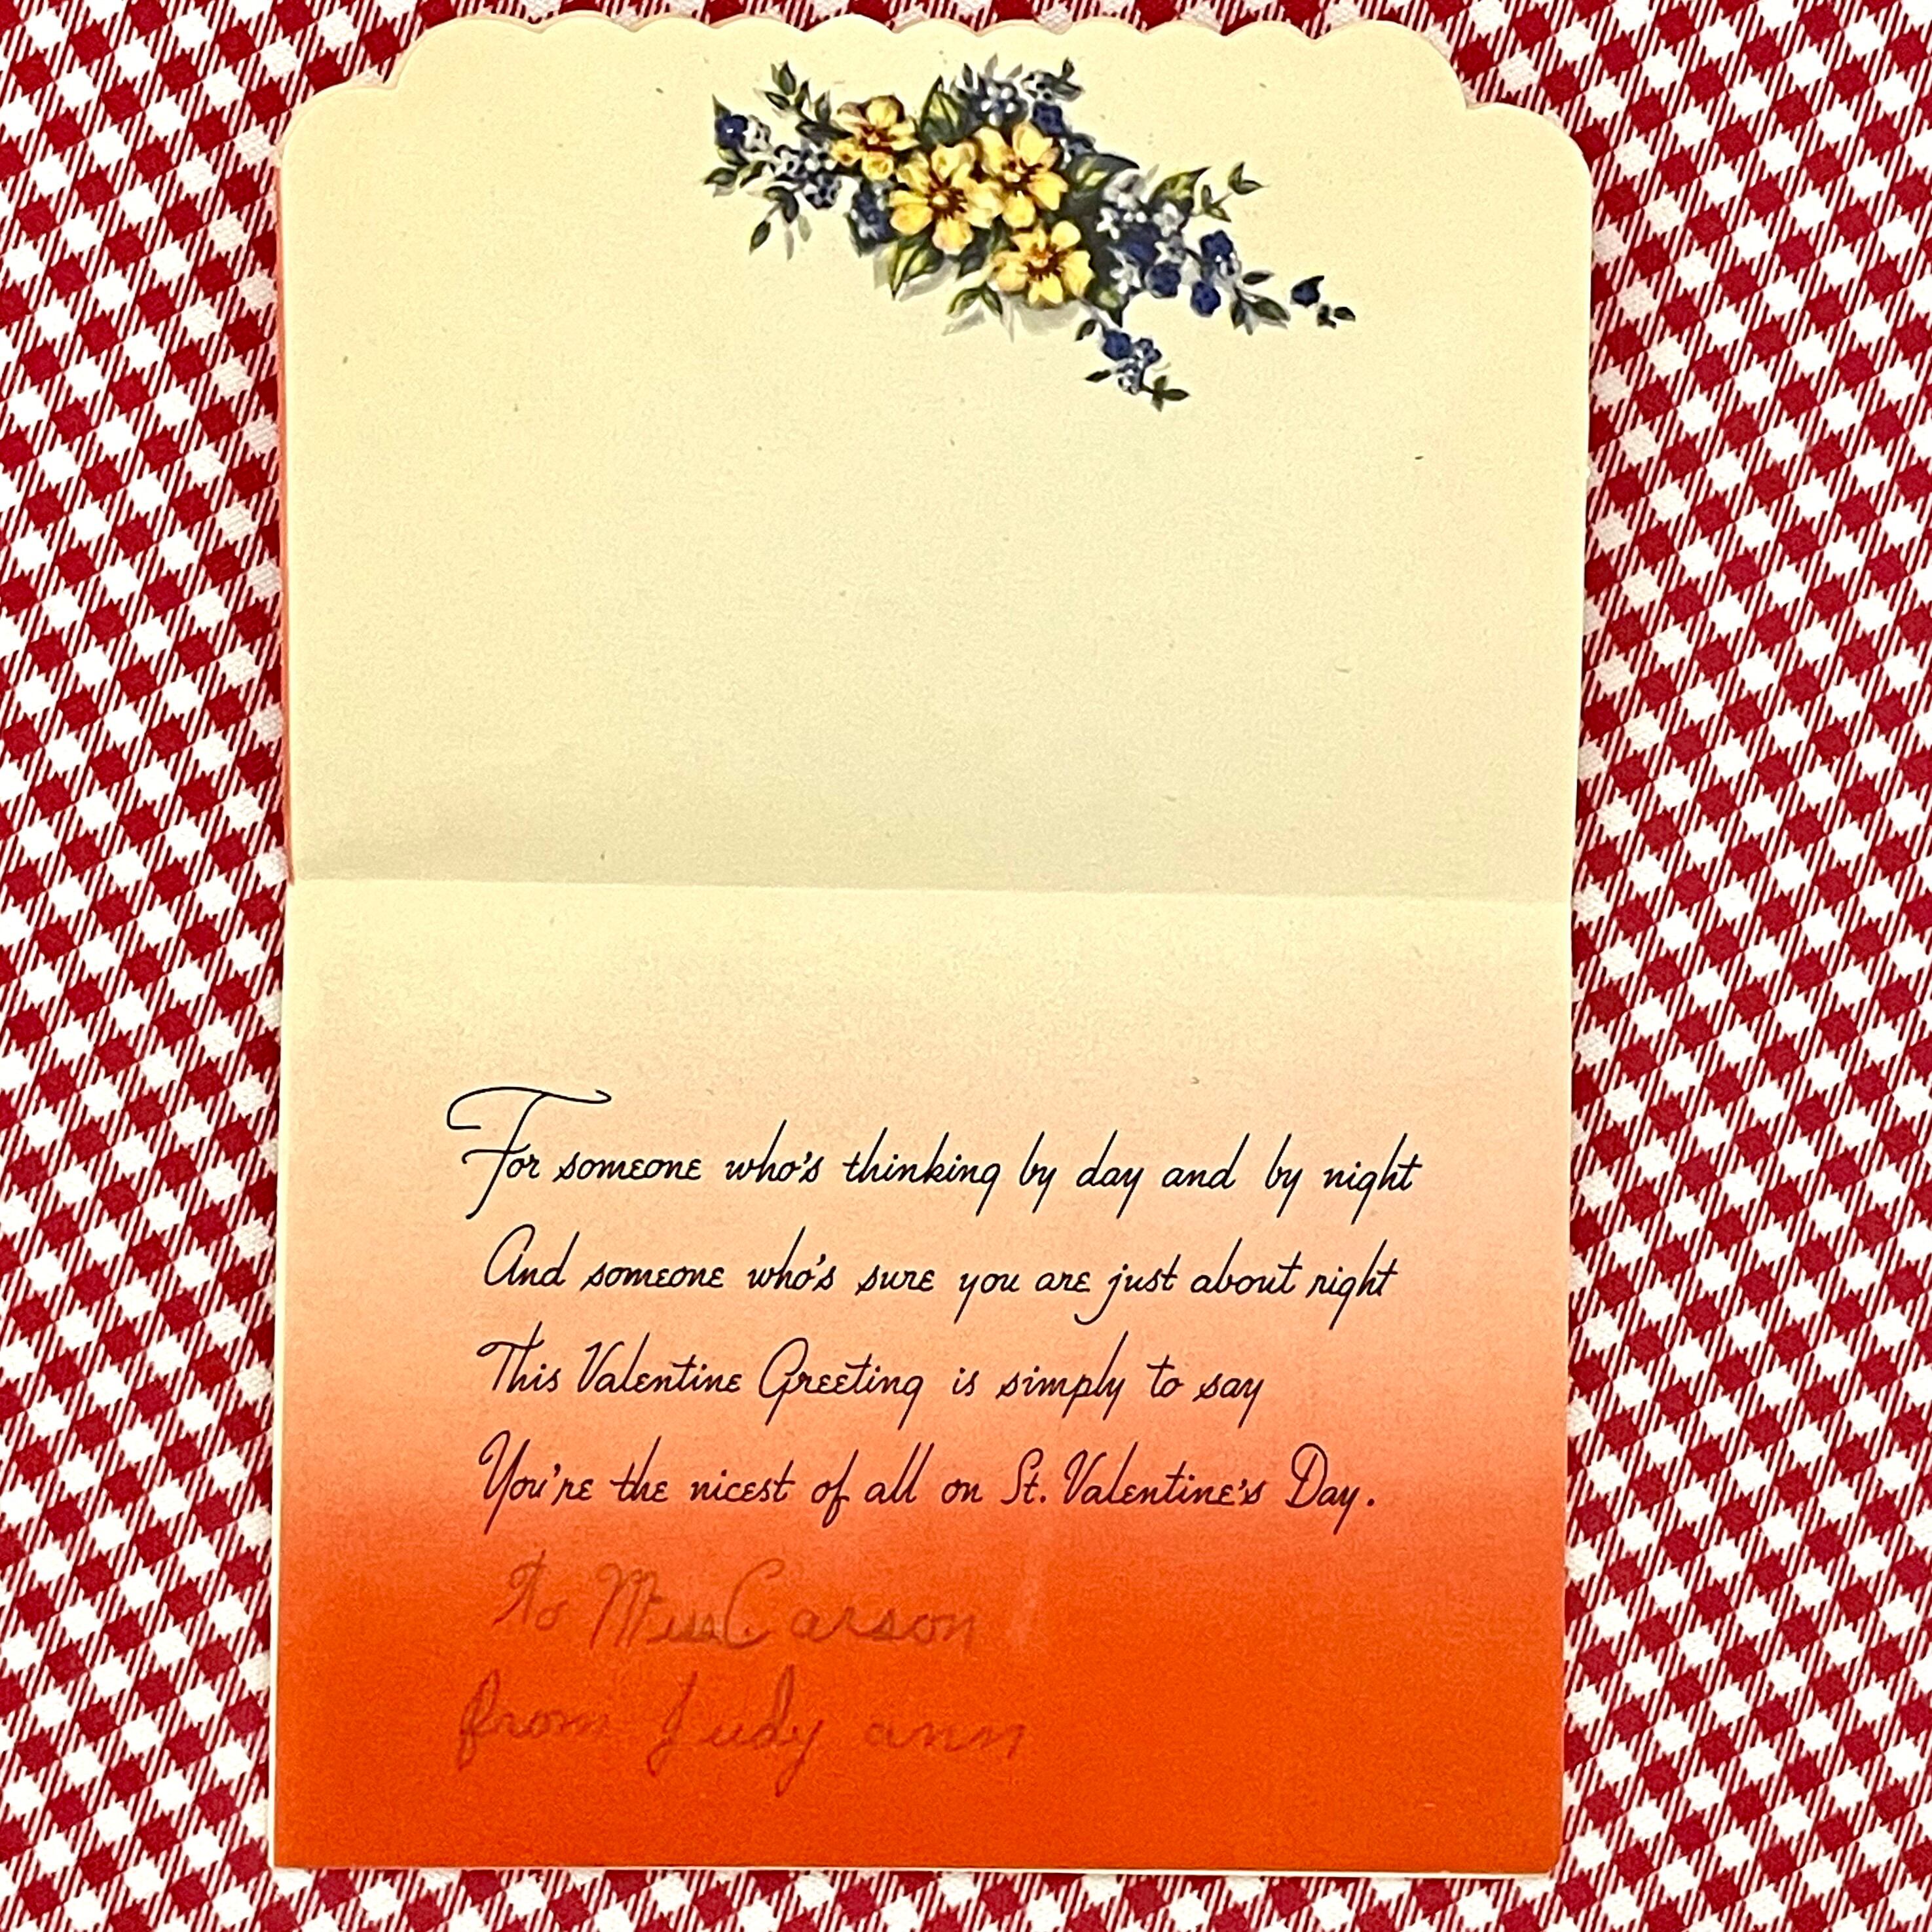 For someone who's thinking by day and by night
And someone who's sure you are just about right
This Valentine Greeting is simply to say
You're the nicest of all on St. Valentine's Day.
to Miss Carson
from Judy ann